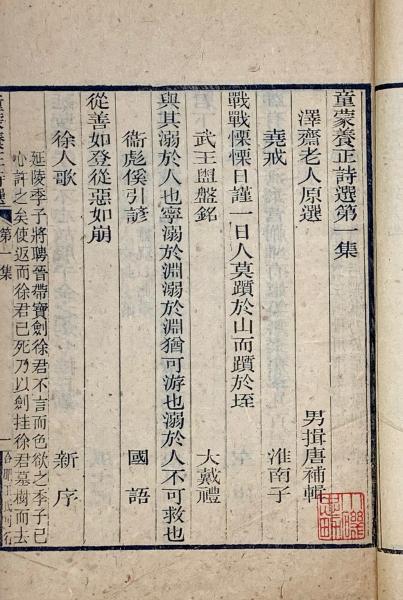 童蒙養正詩選第一集
澤齋老人原選 男揖唐補輯
堯戒 淮南子
戰戰慄慄日謹一日人莫躓於山而躓於垤
武王盥盤銘 大戴禮
與其溺於人也寧溺於淵溺於淵猶可游也溺於人不可救也
衞彪傒引諺 國語
從善如登從惡如崩
徐人歌 新序
延陵季子將聘晉帶寶劍徐君不言而色欲之季子已
心許之矣使返而徐君已死乃以劍挂徐君墓樹而去
第一集
一